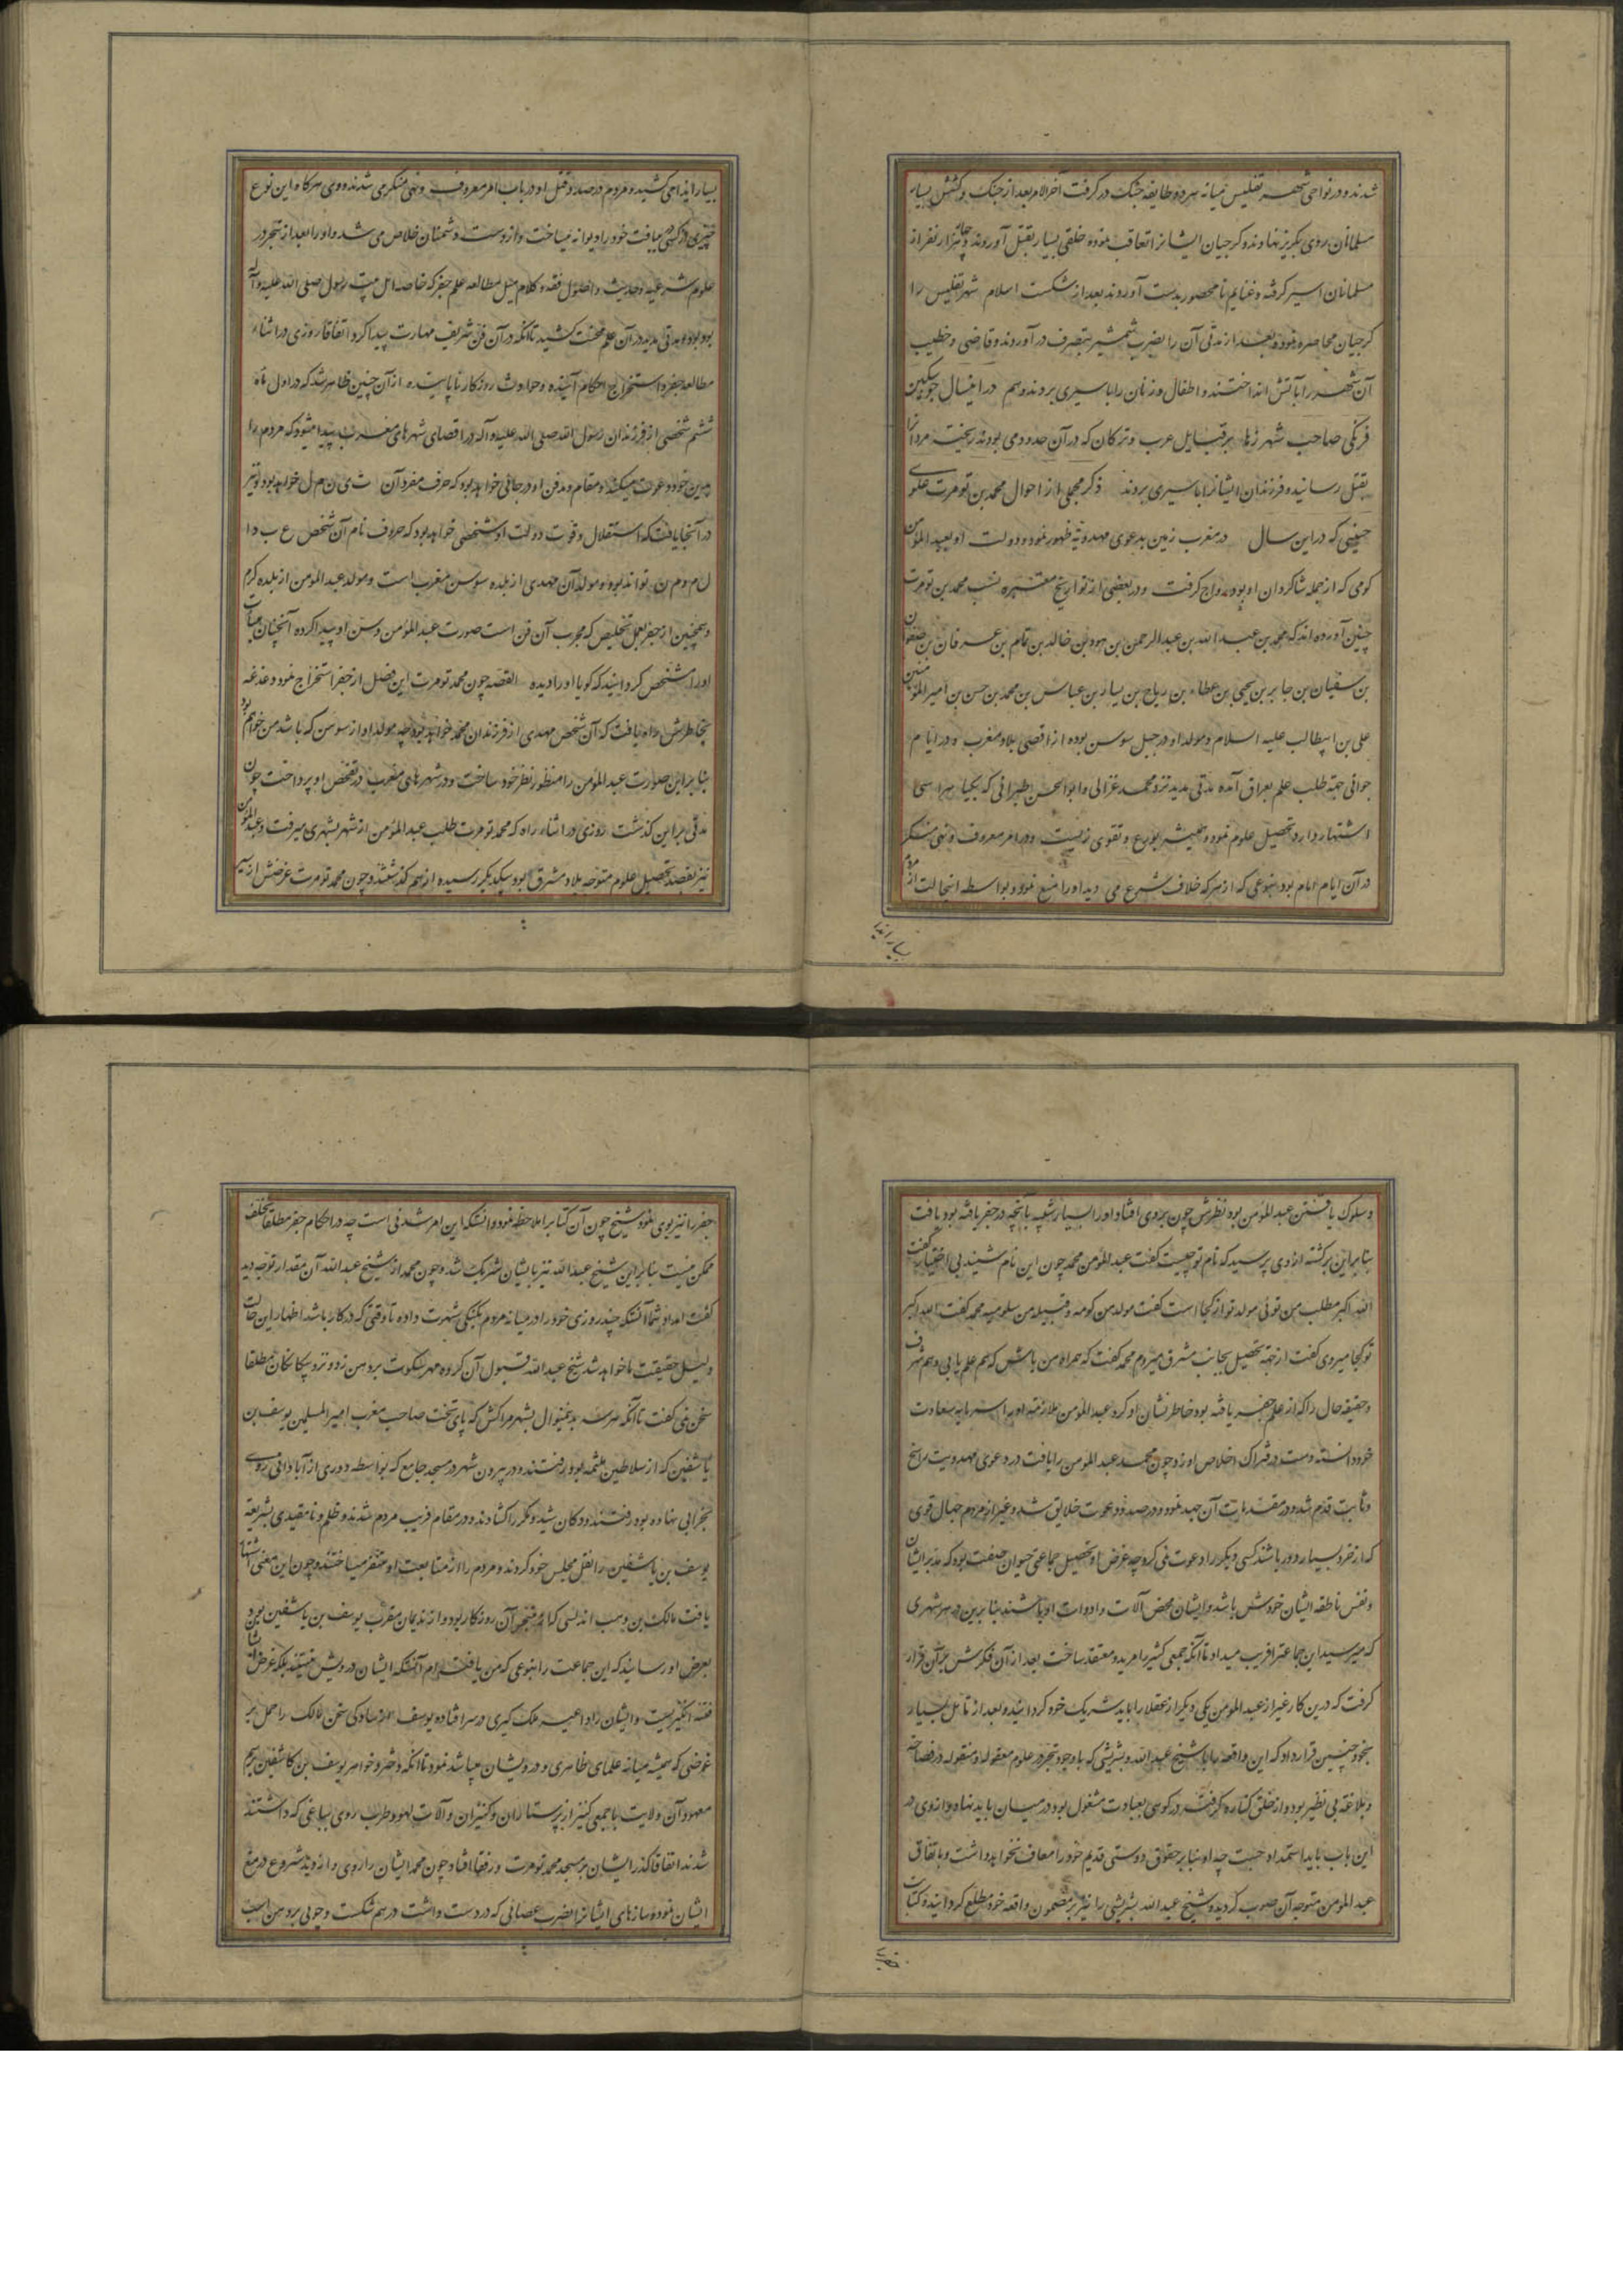 شدند و در نواحی شهر تفلیس میانه هر دو طایفه جنگ در گرفت آخر الامر بعد از جنگ و کشش بسیار
مسلمانان روی بگریز نهادند و گرجیان ایشانرا تعاقب نموده خلقی بسیار بقتل آوردند و چهار هزار نفر از
مسلمانان اسیر گرفته و غنایم نامحصور بدست آوردند بعد از شکست اسلام شهر تفلیس را
گرجیان محاصره نموده بعد از مدتی آن را بضرب شمشیر بتصرف در آوردند و قاضی و خطیب
آن شهر را بآتش انداختند و اطفال و زنان را باسیری بردند و هم در اینسال جوسکین
فرنگی صاحب شهر رها بر قبایل عرب و ترکان که در آن حدود می بودند ریخته مردانرا
بقتل رسانیده فرزندان ایشانرا باسیری بردند ذکر مجملی از احوال محمد بن تومرت علوی
حسنی که در این سال در مغرب زمین بدعوی مهدویة ظهور نمود و دولت او بعبد المؤمن
کومی که از جمله شاکردان او بود رواج گرفت و در بعضی از تواریخ معتبره نسب محمد بن تومرت
چنین آورده اند که محمد بن عبد الله بن عبد الرحمن بن هود بن خالد بن تمام بن عدنان بن صفوان
بن سفیان بن جابر بن یحیی بن عطاء بن ریاح بن یسار بن عباس بن محمد بن حسن بن امیر المؤمنین
علی بن ابیطالب علیه السلام و مولد او در جبل سوس بوده از اقصی بلاد مغرب و در ایام
جوانی جهة طلب علم بعراق آمده مدتی مدید نزد محمد غزالی و ابو الحسن طبرانی که بکیا هراسی
اشتهار دارد تحصیل علوم نمود و همیشه بورع و تقوی زیست و در امر معروف و نهی منکر
در آن ایام امام بود بنوعی که از هر که خلاف شرع می دید او را منع نمود و بواسطه اینحالت از مردم
بسیار ایذا
بسیار ایذا می کشید و مردم در صدد قتل او در باب امر معروف و نهی منکر می شدند و وی هرگاه این نوع
چیزی از کسی می یافت خود را دیوانه میساخت و از دست دشمنان خلاص می شد و او را بعد از تبحر در
علوم شرعیه و حدیث و اصول فقه و کلام میل مطالعه علم جفر که خاصه اهل بیت رسول صلی الله علیه و آله
بود بوده مدتی مدید در آن علم محنت کشید تا آنکه در آن فن شریف مهارت پیدا کرد اتفاقا روزی در اثناء
مطالعه جفر و استخراج احکام آینده و حوادث روزکار ناپاینده از آن چنین ظاهر شد که در اول مأه
ششم شخصی از فرزندان رسول الله صلی الله علیه و آله در اقصای شهرهای مغرب پیدا میشود که مردم را
بدین خود دعوت میکند و مقام و مدفن او در جائی خواهد بود که حرف مفرد آن ت ی ن م ل خواهد بود و نیز
در آنجا یافت که استقلال و قوت دولت او شخصی خواهد بود که حروف نام آن شخص ع ب د ا
ل م و م ن تواند بود و مولد آن مهدی از بلده سوس مغرب است و مولد عبد المؤمن از بلده کرم
و همچنین از جفر بعمل تخلیص که مجرب آن فن است صورت عبد المؤمن و سن او پیدا کرده آنچنان هیأت
او را مشخص گردانید که گویا او را دیده القصه چون محمد تومرت این فصل از جفر استخراج نمود دغدغه
بخاطرش راه یافت که آن شخص مهدی از فرزندان محمد خواهد بود چه مولد او از سوس که باشد من خواهم بود
بنا براین صورت عبد المؤمن را منظور نظر خود ساخت و در شهرهای مغرب در تفحص او پرداخت چون
مدتی بر این گذشت روزی در اثناء راه که محمد تومرت بطلب عبد المؤمن از شهر بشهری میرفت و عبد المؤمن
نیز بقصد تحصیل علوم متوجه بلاد مشرق بود بیکدیگر رسیده از هم گذشتند و چون محمد تومرت غرضش از سیر
و سلوک یافتن عبد المؤمن بود نظرش چون بر وی افتاد او را بسیار شبیه بآنچه در جفر یافته بود یافت
بنا براین برگشته از وی پرسید که نام تو چیست گفت عبد المؤمن محمد چون این نام شنید بی اختیار گفت
الله اکبر مطلب من توئی مولد تو از کجا است گفت مولد من کومه و قبیله من سلومیه محمد گفت الله اکبر
تو کجا میروی گفت از جهة تحصیل بجانب مشرق میروم محمد گفت که همراه من باش که هم علم یابی و هم شرف
و حقیقه حال را که از علم جفر یافته بود خاطر نشان او کرد عبد المؤمن ملازمة او را سرمایه سعادت
خود دانسته دست در فتراک اخلاص او زد و چون محمد عبد المؤمن را یافت در دعوی مهدویت راسخ
و ثابت قدم شد و در مقدمات آن جهد نمود و در صدد دعوت خلایق شد و غیر از مردم جبال قوی
که از خرد بسیار دور باشند کسی دیگر را دعوت نمی کرد چه غرض او تحصیل جماعتی حیوان صفت بود که مدبر ایشان
و نفس ناطقه ایشان خودش باشد و ایشان محض آلات و ادوات او باشند بنا برین در هر شهری
که میرسید این جماعترا فریب میداد تا آنکه جمعی کثیر را مرید و معتقد ساخت بعد از آن فکرش بر آن قرار
گرفت که درین کار غیر از عبد المؤمن یکی دیگر از عقلا را باید شریک خود گردانیده و بعد از تأمل بسیار
بخود چنین قرار داد که این واقعه را با شیخ عبد الله ونشریشی که با وجود تبحر در علوم معقوله و منقوله در فصاحة
و بلاغة بی نظیر بود و از خلق کناره گرفته در کوهی بعبادت مشغول بود در میان باید نهاد و از وی در
این باب باید استمداد جست چه او بنا بر حقوق دوستی قدیم خود را معاف نخواهد داشت و باتفاق
عبد المؤمن متوجه آن صوب گردید و شیخ عبد الله ونشریشی را نیز بر مضمون واقعه خود مطلع گردانیده کتاب
جفر را
جفر را نیز بوی نمود شیخ چون آن کتابرا ملاحظه نمود دانست که این امر شدنی است چه در احکام جفر مطلقا تخلف
ممکن نیست بنا براین شیخ عبد الله نیز با ایشان شریک شد و چون محمد از شیخ عبد الله آن مقدار توجه دید
گفت امداد شما آنست که چند روزی خود را در میانه مردم بگنگی شهرت داده تا وقتی که در کار باشد اظهار این حالت
دلیل حقیقت ما خواهد شد شیخ عبد الله قبول آن کرده مهر سکوت بر دهن زد و نزد بیگانگان مطلقا
سخن نمی گفت تا آنکه هر سه بدینمنوال بشهر مراکش که پای تخت صاحب مغرب امیر المسلمین یوسف بن
تاشفین که از سلاطین ملثمه بود رفتند و در بیرون شهر در مسجد جامع که بواسطه دوری از آبادانی روی
بخرابی نهاده بود رفتند و دکان شید و مکر را گشادند و در مقام فریب مردم شدند و ظلم و نامقیدی بشریعة
یوسف بن تاشفین را نقل مجلس خود کردند و مردم را از متابعت او متنفر میساختند و چون این معنی اشتهار
یافت مالک بن وهب اندلسی که از متبحر آن روزگار بود و از ندیمان مقرب یوسف بن تاشفین بود
بعرض او رسانید که این جماعت را بنوعی که من یافته ام آنست که ایشان درویش نیستند بلکه غرض ایشان
فتنه انگیزیست و ایشان را داعیه ملک گیری در سر افتاده یوسف از سادگی سخن مالک را حمل بر
غرضی که همیشه میانه علمای ظاهری و درویشان میباشد نمود تا آنکه دختر و خواهر یوسف بن تاشفین برسم
معهود آن ولایت با جمعی کثیر از پرستاران و کنیزان و آلات لهو و طرب روی بباغی که داشتند
شدند اتفاقا گذر ایشان بر مسجد محمد تومرت و رفقا افتاد چون محمد ایشان را روی وا زدید شروع در منع
ایشان نمود و سازهای ایشانرا بضرب عصائی که در دست داشت درهم شکست و چوبی بر دهن اسب